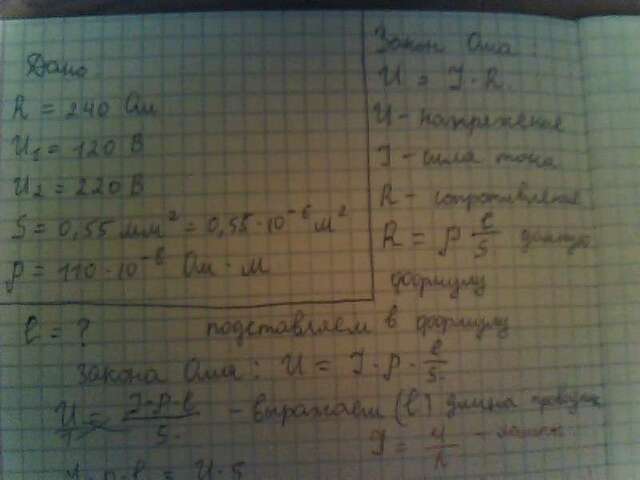 Дано
R = 240 Ом
U₁ = 120 В
U₂ = 220 В
S = 0,55 мм² = 0,55·10⁻⁶ м²
ρ = 110·10⁻⁸ Ом·м
l = ?
Закон Ома:
U = I·R
U - напряжение
I - сила тока
R - сопротивление
R = ρ l/S данную
формулу
подставляем в формулу
закона Ома: U = I·ρ·l/S
U = I·ρ·l/S - выражаем (l) длина
I = U/R
I·ρ·l = U·S